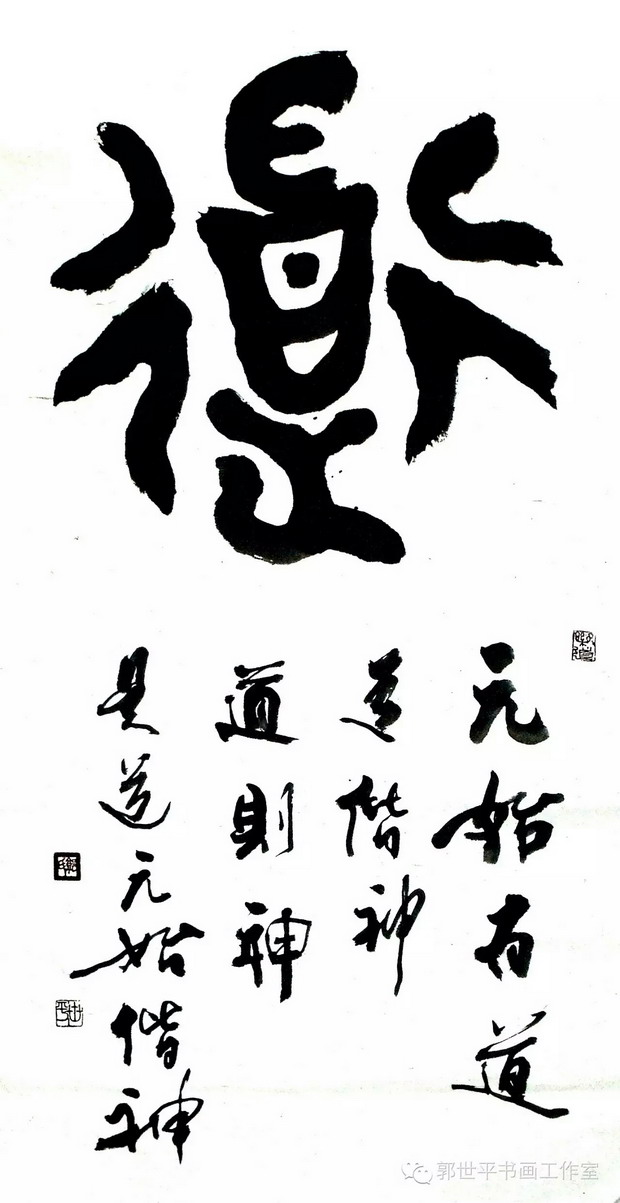 道
元始有道
道偕神
道則神
是道元始偕神
郭世平书画工作室